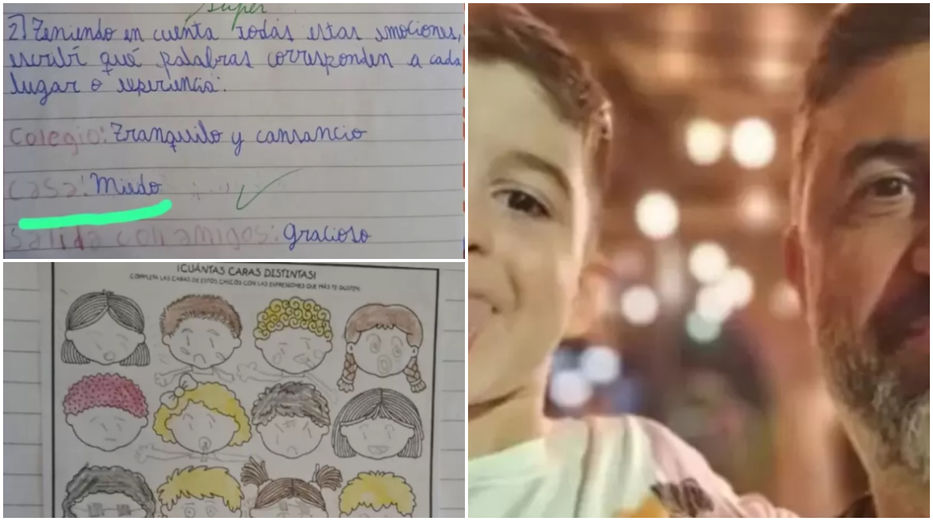 super
2) Teniendo en cuenta todas estas emociones,
escribí qué palabras corresponden a cada
lugar o experiencia:
Colegio: Tranquilo y cansancio
Casa: Miedo
Salida con amigos: gracioso
¡CUÁNTAS CARAS DISTINTAS!
COMPLETA LAS CARAS DE ESTOS CHICOS CON LAS EXPRESIONES QUE MÁS TE GUSTEN.